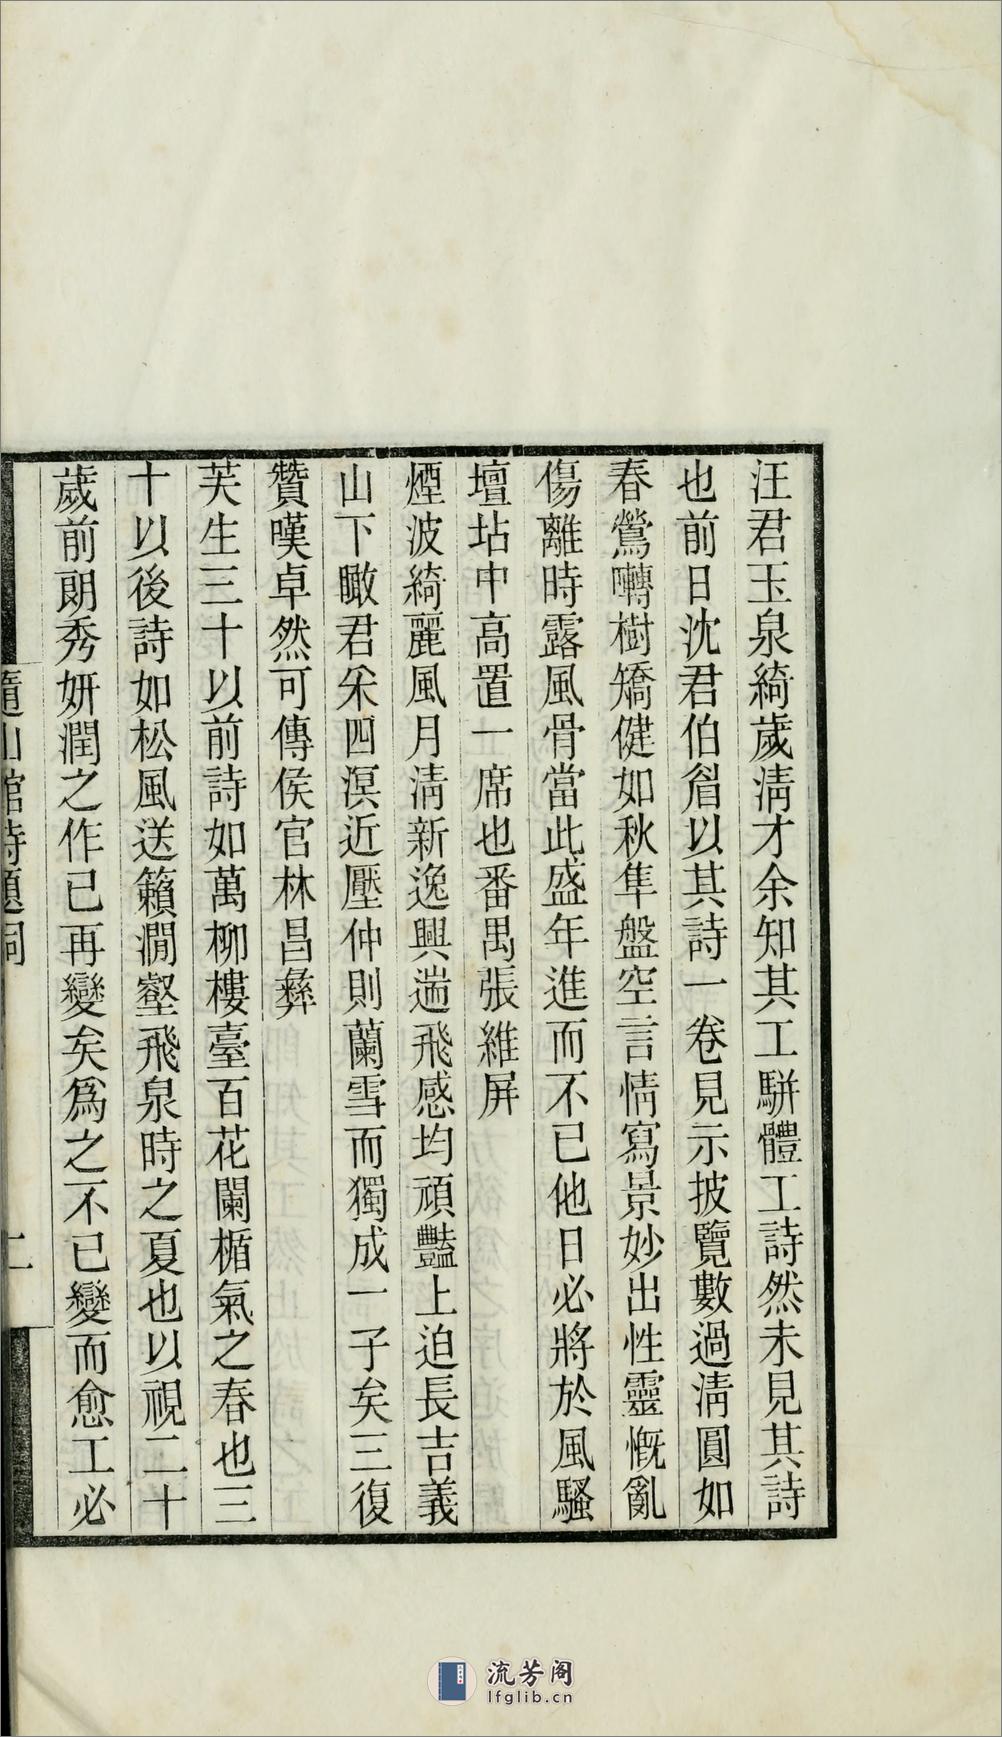 汪君玉泉綺歲淸才余知其工駢體工詩然未見其詩
也前日沈君伯眉以其詩一卷見示披覽數過淸圓如
春鶯囀樹矯健如秋隼盤空言情寫景妙出性靈慨亂
傷離時露風骨當此盛年進而不已他日必將於風騷
壇坫中高置一席也番禺張維屏
煙波綺麗風月淸新逸興遄飛感均頑豔上迫長吉義
山下瞰君采四溟近壓仲則蘭雪而獨成一子矣三復
贊嘆卓然可傳侯官林昌彝
芙生三十以前詩如萬柳樓臺百花闌楯氣之春也三
十以後詩如松風送籟澗壑飛泉時之夏也以視二十
歲前朗秀妍潤之作已再變矣爲之不已變而愈工必
隨山館詩題詞
二
流芳阁
lfglib.cn